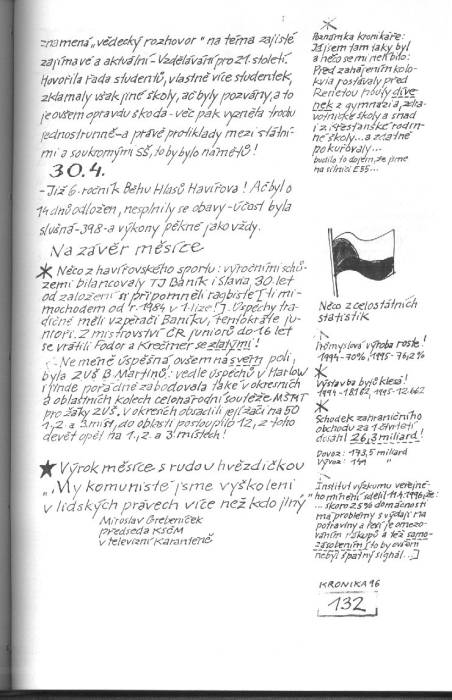 znamená „vědecký rozhovor" na téma zajisté
zajímavé a aktuální - Vzdělávání pro 21. století.
Hovořila řada studentů, vlastně více studentek,
zklamaly však jiné školy, ač byly pozvány, a to
je ovšem opravdu škoda - věc pak vyzněla trochu
jednostranně - a právě protiklady mezi státní-
mi a soukromými SŠ, to by bylo námětů!
30.4.
- Již 6. ročník Běhu Hlasů Havířova! Ač byl o
14 dnů odložen, nesplnily se obavy - účast byla
slušná - 398 - a výkony pěkné jako vždy.
Na závěr měsíce
Něco z havířovského sportu: výročními schů-
zemi bilancovaly TJ Baník i Slavia, 30. let
od založení si připomněli ragbisté [ti mi-
mochodem od r. 1984 v I. lize!]. Úspěchy tra-
dičně měli vzpěrači Baníku, tentokráte ju-
nioři. Z mistrovství ČR juniorů do 16 let
se vrátili Fodor a Krečmer se zlatými!
- Ne méně úspěšná, ovšem na svém poli,
byla ZUŠ B. Martinů: vedle úspěchů v Harlow
[jinde] pořádně zabodovala také v okresních
a oblastních kolech celonárodní soutěže MŠMT
pro žáky ZUŠ. V okresních obsadili její žáci na 50
1., 2. a 3. míst, do oblastí postoupilo 12, z toho
devět opět na 1., 2. a 3. místech!
Výrok měsíce s rudou hvězdičkou
„My komunisté jsme vyškoleni
v lidských právech více než kdo jiný"
Miroslav Grebeníček
předseda KSČM
v televizní Karanténě
Poznámka kronikáře:
Já jsem tam taky byl
a něco se mi nelíbilo:
Před zahájením kolo-
kvia postávaly před
Renetou houfy díve-
nek z gymnázia, zdra-
votnické školy a snad
i z křesťanské rodin-
né školy... a zdatně
pokuřovaly...
budilo to dojem, že jsme
na silnici E55...
Něco z celostátních
statistik
Průmyslová výroba roste!
1994 - 70%, 1995 - 76,2%
Výstavba bytů klesá!
1994 - 18.162, 1995 - 12.662
Schodek zahraničního
obchodu za 1. čtvrtletí
dosáhl 26,3 miliard!
Dovoz: 173,5 miliard
Vývoz: 147 "
Institut výzkumu veřejné-
ho mínění sdělil 11.4.1996, že:
... skoro 25% domácností
má problémy s výdaji na
potraviny a řeší je omezo-
váním nákupů a též samo-
zásobením [to by ovšem
nebyl špatný signál...]
KRONIKA 96
132